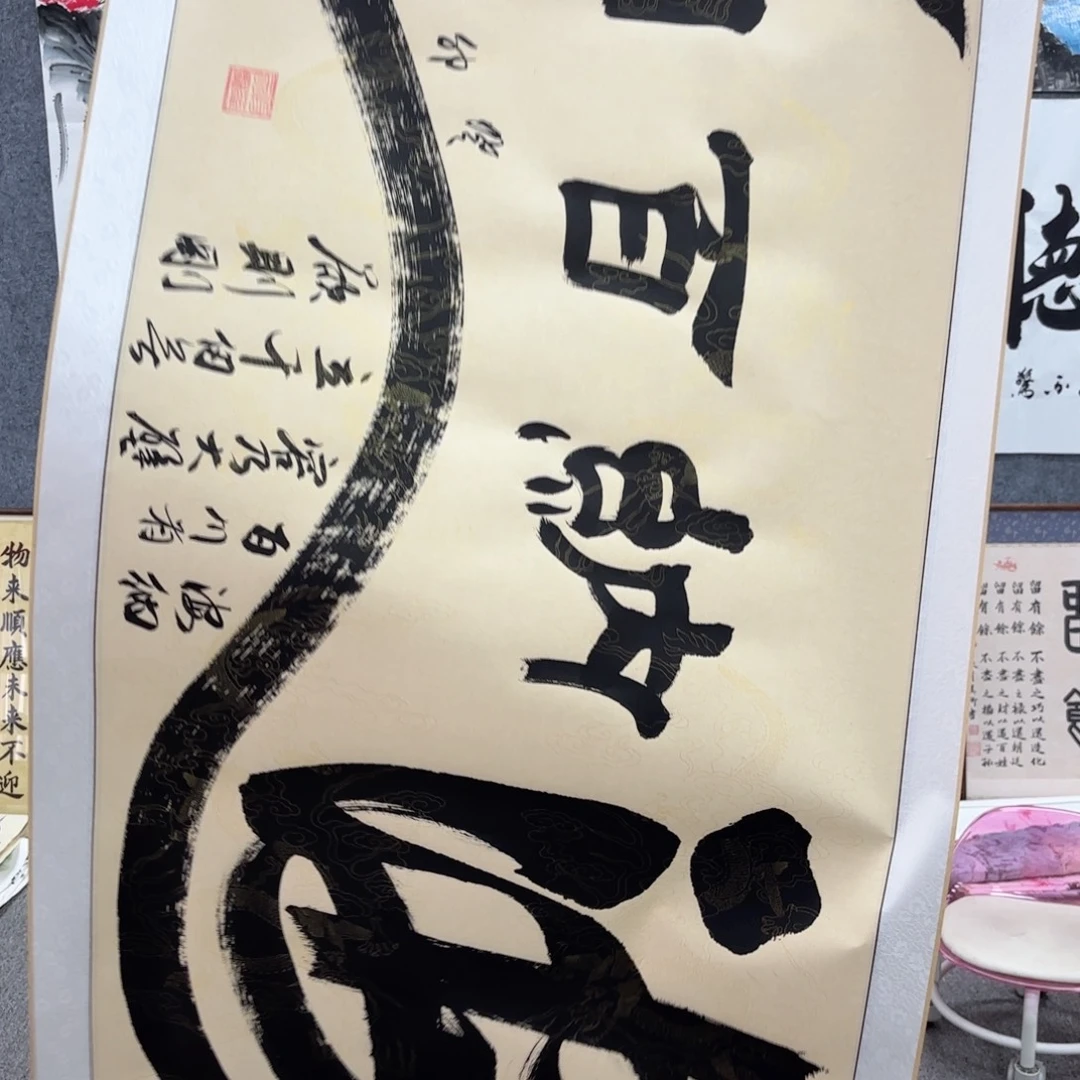 海納百
海納
百川有
容乃大壁
立千仞無
欲則剛
癸卯
物来順應未来不迎
德
留有餘不盡之巧以還造化
留有餘不盡之祿以還朝廷
留有餘不盡之財以還百姓
留有餘不盡之福以還子孫